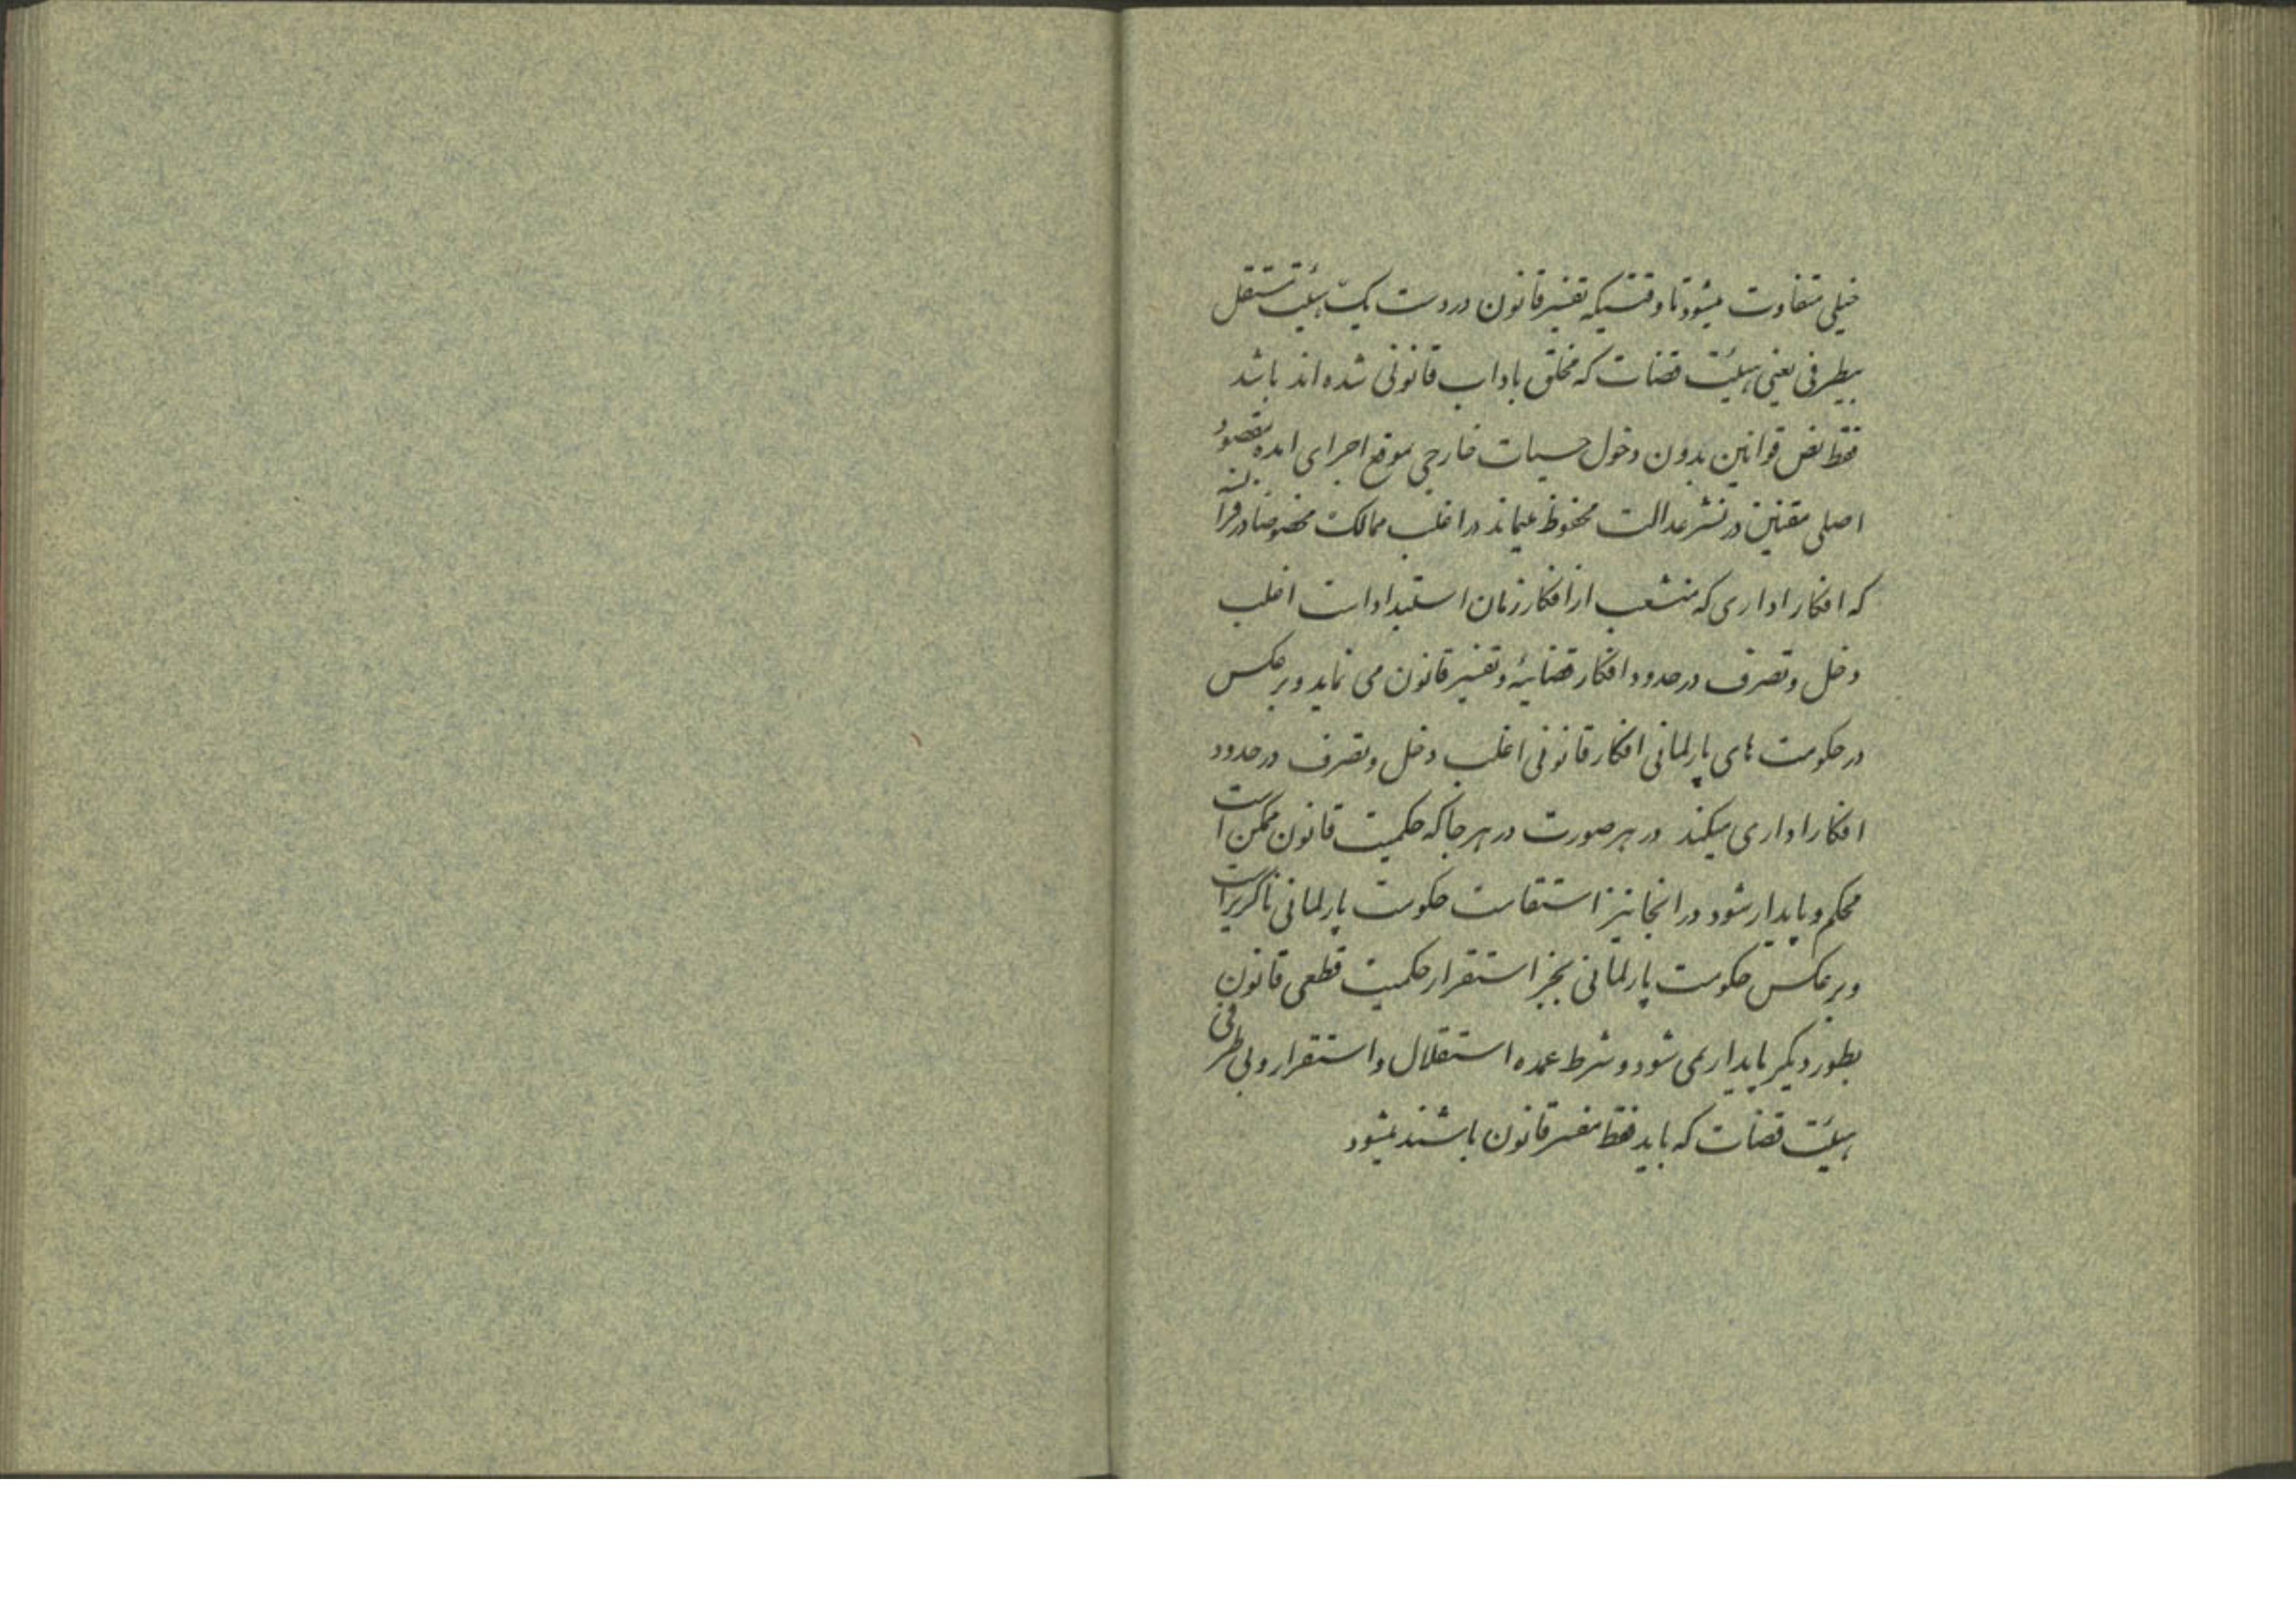 خیلی متفاوت میشود تا وقتیکه تفسیر قانون در دست یک هیئت مستقل
بیطرفی یعنی هیئت قضات که مخلق باداب قانونی شده اند باشد
فقط نص قوانین بدون دخول حسیات خارجی بموقع اجرای امده مقصود
اصلی مقننین در نشر عدالت محفوظ میماند در اغلب ممالک مخصوصا در فرانسه
که افکار اداری که منشعب از افکار زمان استبداد است اغلب
دخل و تصرف در حدود افکار قضائیهٔ و تفسیر قانون می نماید و برعکس
در حکومت های پارلمانی افکار قانونی اغلب دخل و تصرف در حدود
افکار اداری میکند در هر صورت در هر جا که حکمیت قانون ممکن است
محکم و پایدار شود در انجا نیز استقامت حکومت پارلمانی ناگزیر است
و برعکس حکومت پارلمانی بجز استقرار حکمیت قطعی قانون
بطور دیگر پایدار نمی شود و شرط عمده استقلال و استقرار و بی طرفی
هیئت قضات که باید فقط مفسر قانون باشند میشود